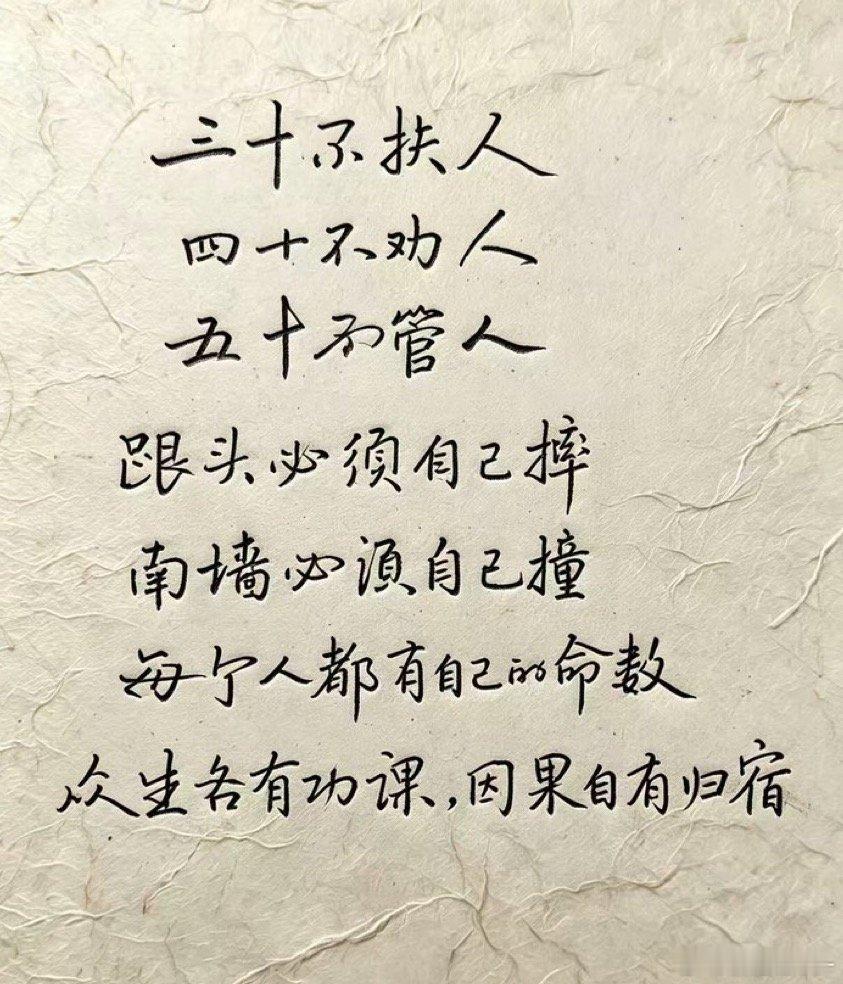 三十不扶人
四十不劝人
五十不管人
跟头必须自己摔
南墙必须自己撞
每个人都有自己的命数
众生各有功课,因果自有归宿